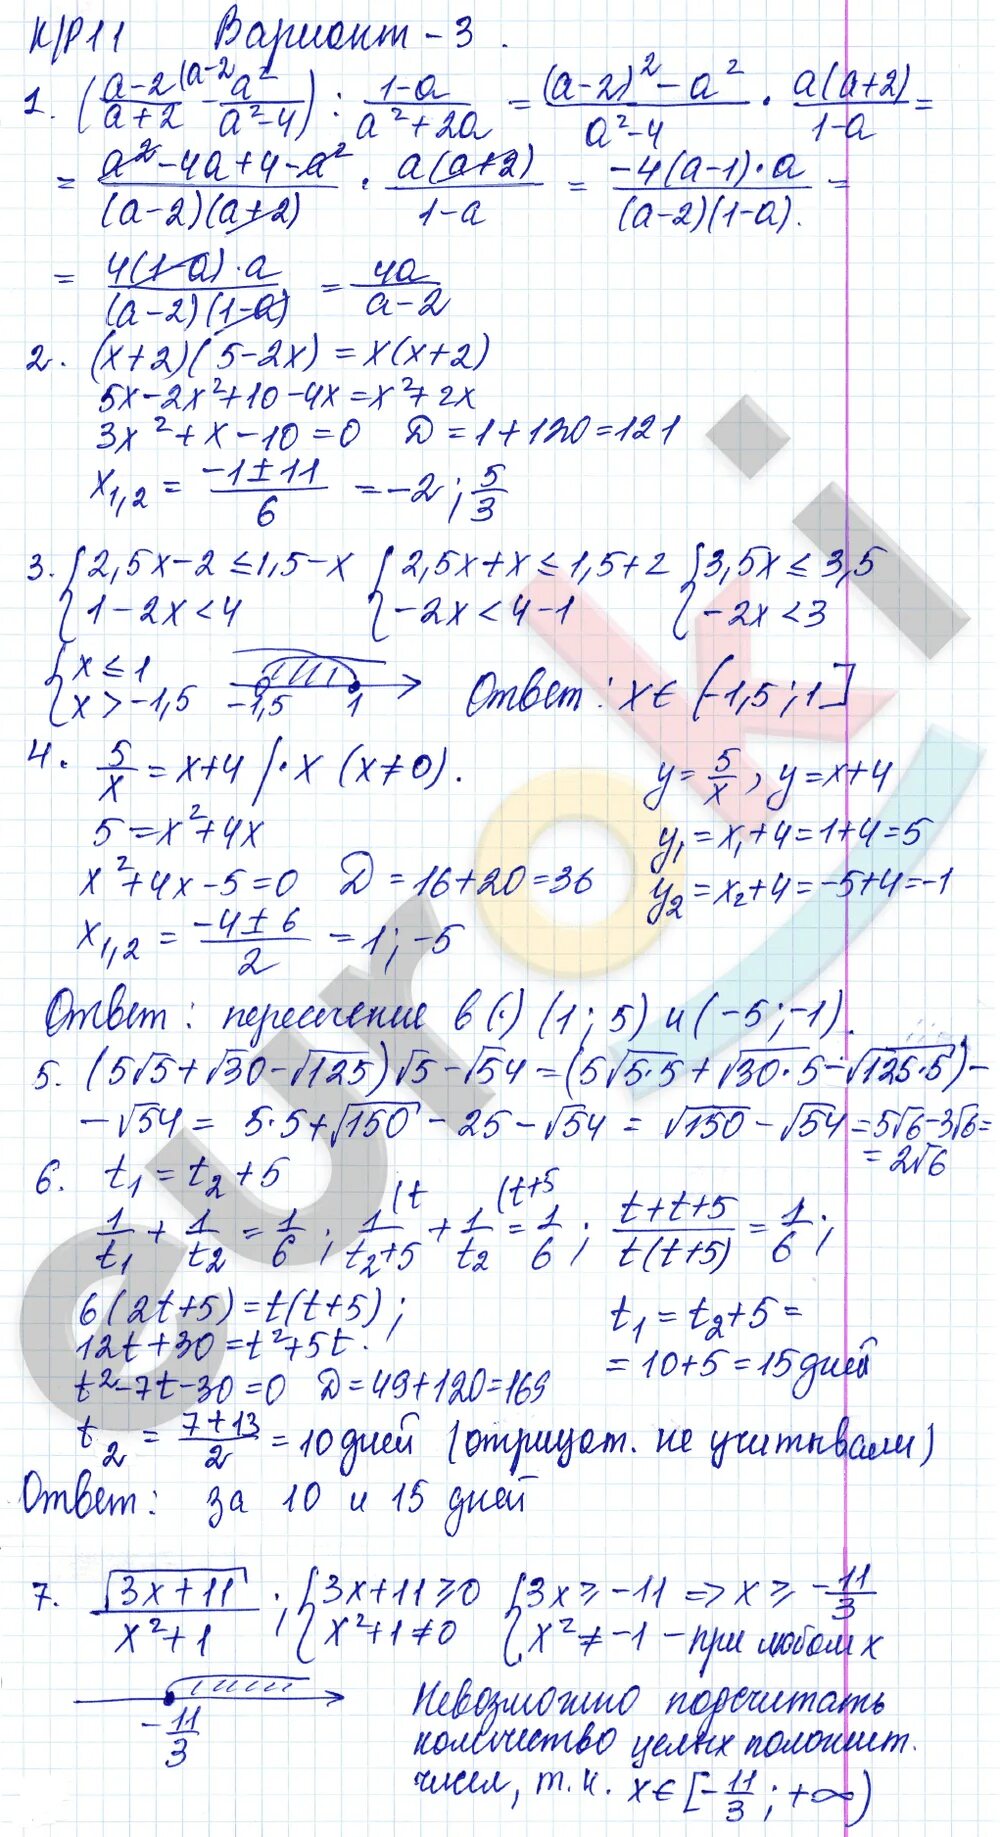 К/Р11 Вариант - 3.
1. ((a-2)/(a+2) (a-2 - a²/(a²-4)) : (1-a)/(a²+2a) = ((a-2)² - a²)/(a²-4) · a(a+2)/(1-a) =
= (a²-4a+4-a²)/((a-2)(a+2)) · a(a+2)/(1-a) = -4(a-1)·a/((a-2)(1-a)). =
= 4(1-a)·a/((a-2)(1-a)) = 4a/(a-2)
2. (x+2)(5-2x) = x(x+2)
5x-2x²+10-4x=x²+2x
3x²+x-10=0 Д=1+120=121
x₁,₂ = (-1±11)/6 = -2; 5/3
3. {2,5x-2≤1,5-x {2,5x+x≤1,5+2 {3,5x≤3,5
{1-2x<4 {-2x<4-1 {-2x<3
{x≤1
{x>-1,5 -1,5 1 Ответ: x∈(-1,5;1]
4. 5/x = x+4 |·x (x≠0). y=5/x, y=x+4
5=x²+4x y₁=x₁+4=1+4=5
x²+4x-5=0 Д=16+20=36 y₂=x₂+4=-5+4=-1
x₁,₂ = (-4±6)/2 = 1; -5
Ответ: пересечение в (·) (1; 5) и (-5;-1).
5. (5√5+√30-√125)√5-√54=(5√5·5+√30·5-√125·5)-
-√54= 5·5+√150-25-√54 = √150-√54=5√6-3√6=
=2√6
6. t₁=t₂+5
1/t₁ + 1/t₂ = 1/6; 1/(t₂+5) (t + 1/t₂ (t+5 = 1/6; (t+t+5)/(t(t+5)) = 1/6;
6(2t+5)=t(t+5); t₁=t₂+5=
12t+30=t²+5t. =10+5=15дней
t²-7t-30=0 Д=49+120=169
t₂ = (7+13)/2 = 10дней (отрицат. не учитывали)
Ответ: за 10 и 15 дней
7. √(3x+11)/(x²+1); {3x+11≥0 {3x≥-11 => x≥-11/3
{x²+1≠0 {x²≠-1 - при любом x
-11/3
Невозможно подсчитать
количество целых положит.
чисел, т.к. x∈[-11/3; +∞)
euroki